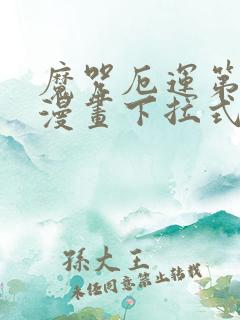 魔咒厄運第
漫畫下拉式
孫大王
未任同意禁止转载